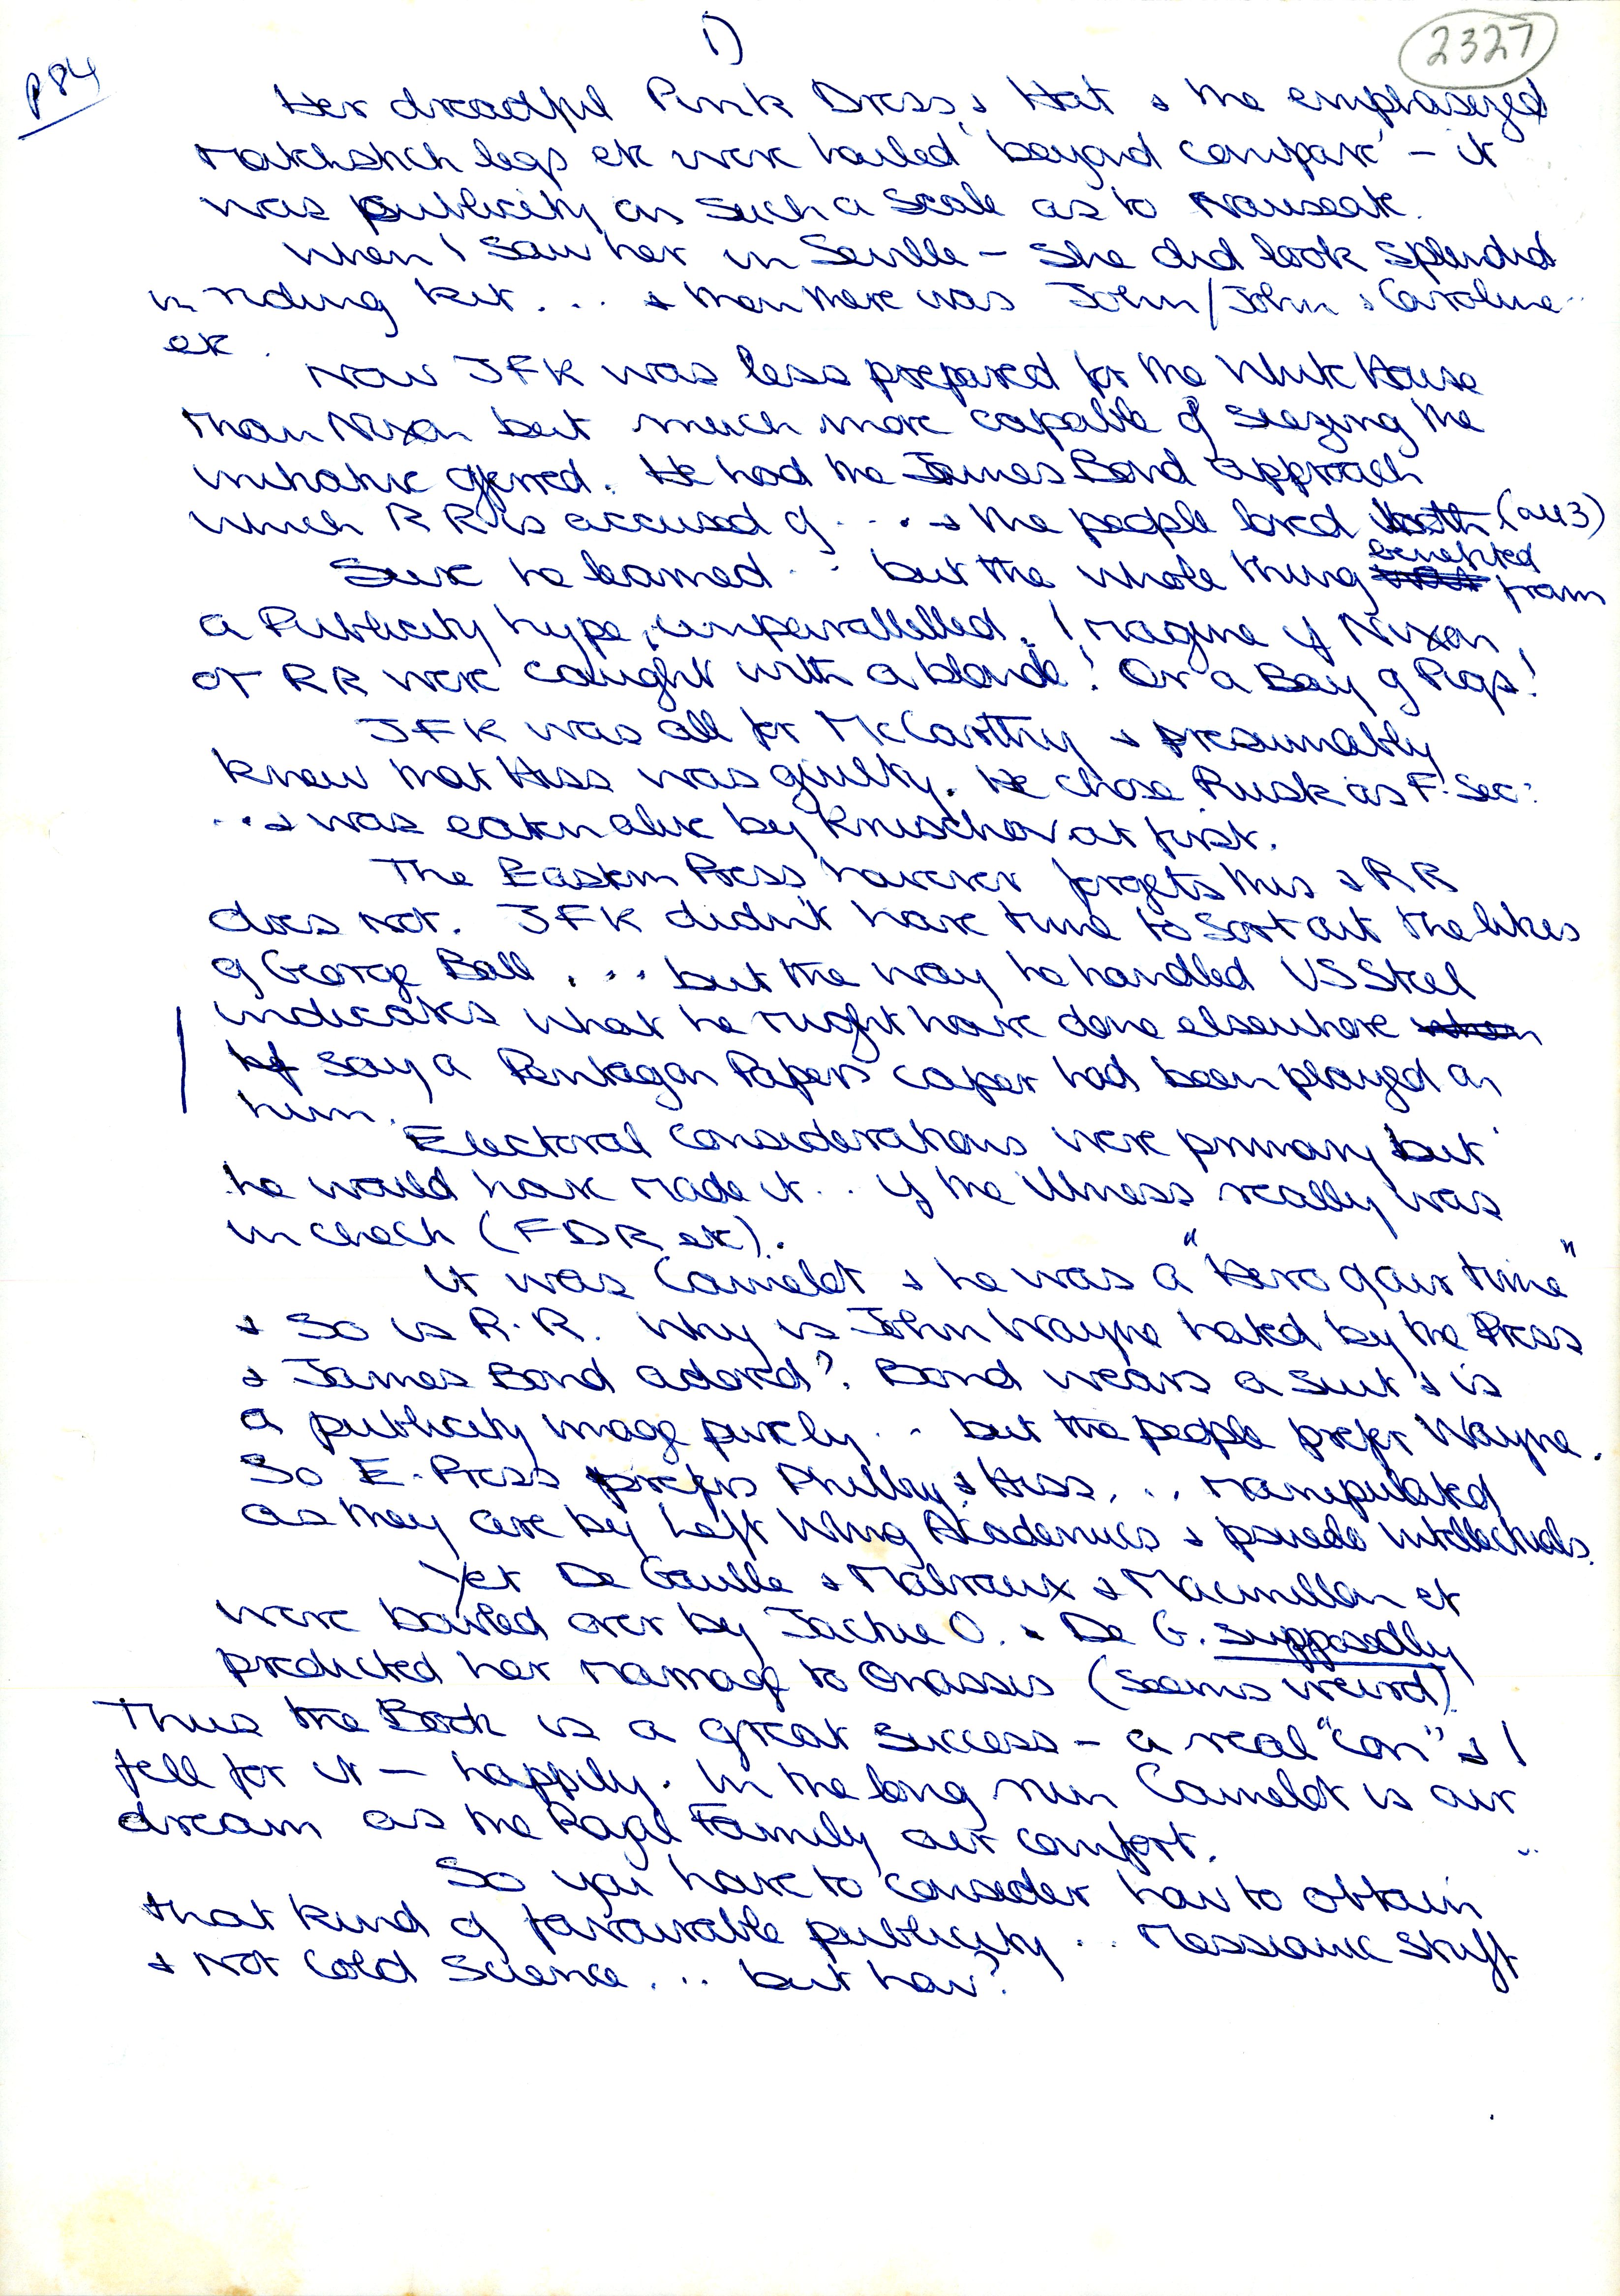 i)
2327
p84
Her dreadful Pink Dress & Hat & the emphasezed
Matchstick legs etc were hailed 'beyond compare' – it
was publicity on such a scale as to Nauseate.
When I saw her in Seville – she did look splendid
in riding kit ... & then there was John/John & Caroline ..
etc.
Now JFK was less prepared for the White House
than Nixon but much more capable of siezing the
initiative offered. He had the James Bond approach
which RR is accused of .... & the people loved both (all 3)
Sure he learned .. but the whole thing benefited from
a Publicity hype, unparallelled. Imagine if Nixon
or RR were caught with a blonde! Or a Bay of Pigs!
JFK was all for McCarthy & presumably
knew that Hiss was guilty. He chose Rusk as F. Sec:
... & was eaten alive by Kruschov at first.
The Eastern Press however forgets this & RR
does not. JFK didn't have time to sort out the likes
of George Ball ... but the way he handled US Steel
indicates what he might have done elsewhere
if say a Pentagon Papers caper had been played on
him.
Electoral considerations were primary but
he would have made it .. if the illness really was
in check (FDR etc).
It was Camelot & he was a "Hero of our time"
& so is R.R. Why is John Wayne hated by the Press
& James Bond adored? Bond wears a suit & is
a publicity image purely .. but the people prefer Wayne.
So E-Press prefers Philby & Hiss ... Manipulated
as they are by Left Wing Academics & psuedo intellectuals.
Yet De Gaulle & Malraux & Macmillan et
were bowled over by Jackie O. & De G. supposedly
predicted her marriage to Onassis (seems weird)
Thus the Book is a great success – a real "con" & I
fell for it – happily. In the long run Camelot is our
dream as the Royal Family our comfort.
So you have to consider how to obtain
that kind of favourable publicity .. Messianic stuff
& Not Cold Science ... but how?